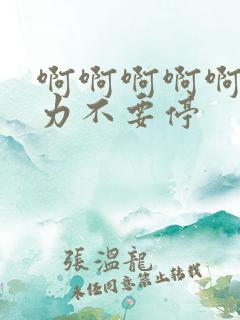 啊啊啊啊啊
力不要停
張溫龍
未经同意禁止转载